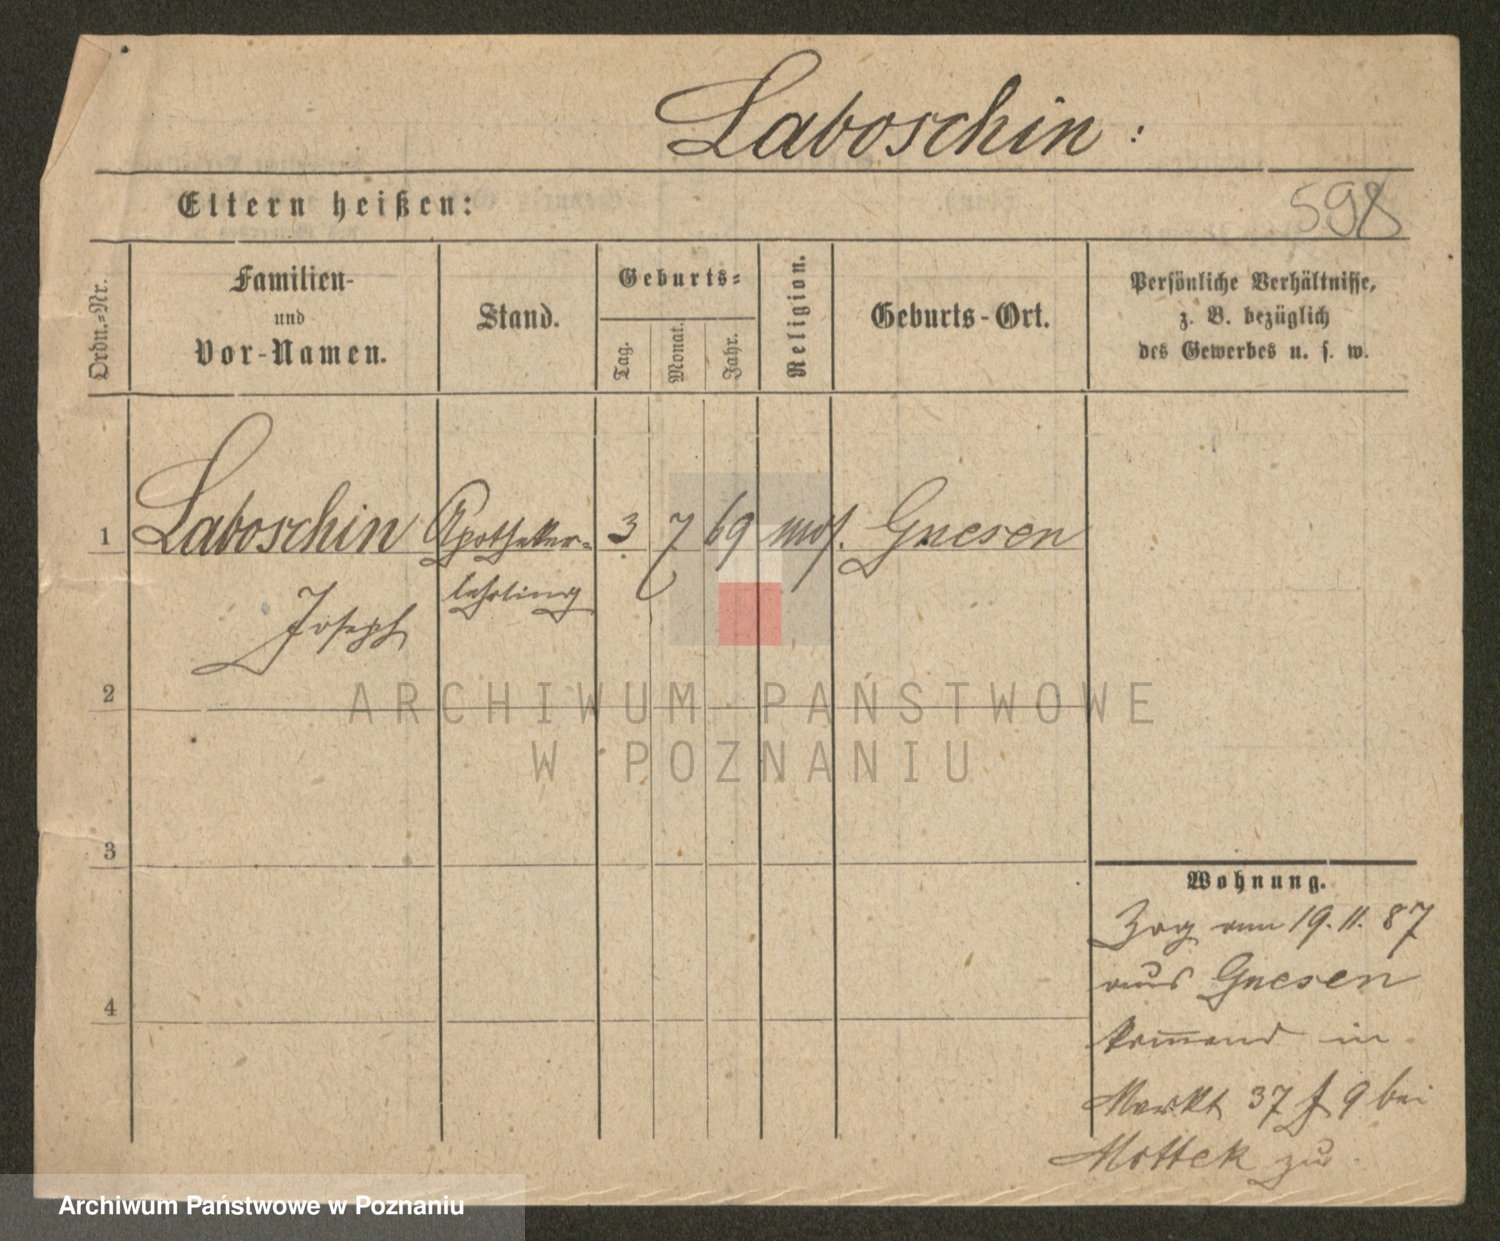 Laboschin :
Eltern heißen:
598
Ordn.-Nr.
Familien-
und
Vor-Namen.
Stand.
Geburts-
Tag.
Monat.
Jahr.
Religion.
Geburts-Ort.
Persönliche Verhältnisse,
z. B. bezüglich
des Gewerbes u. s. w.
1 Laboschin Apotheker- 3 7 69 mos. Gnesen
Joseph lehrling
2
3
4
Wohnung.
Zog am 19. 11. 87
aus Gnesen
kommend in
Markt 37 f 9 bei
Mottek zu
ARCHIWUM PAŃSTWOWE
W POZNANIU
Archiwum Państwowe w Poznaniu